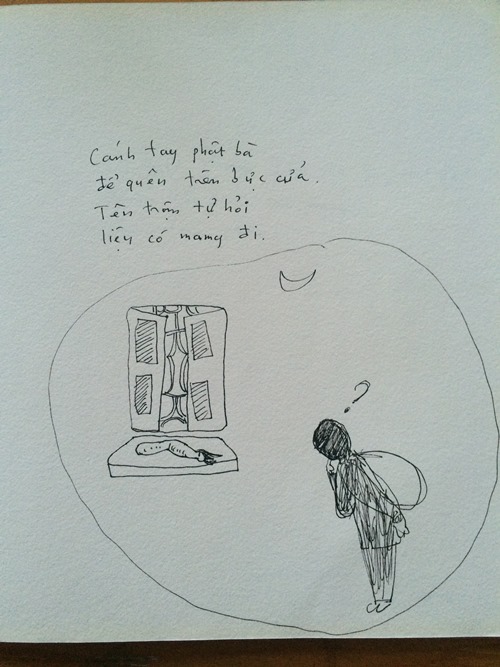 Cánh tay phật bà
để quên trên bực cửa.
Tên trộm tự hỏi
liệu có mang đi.
?